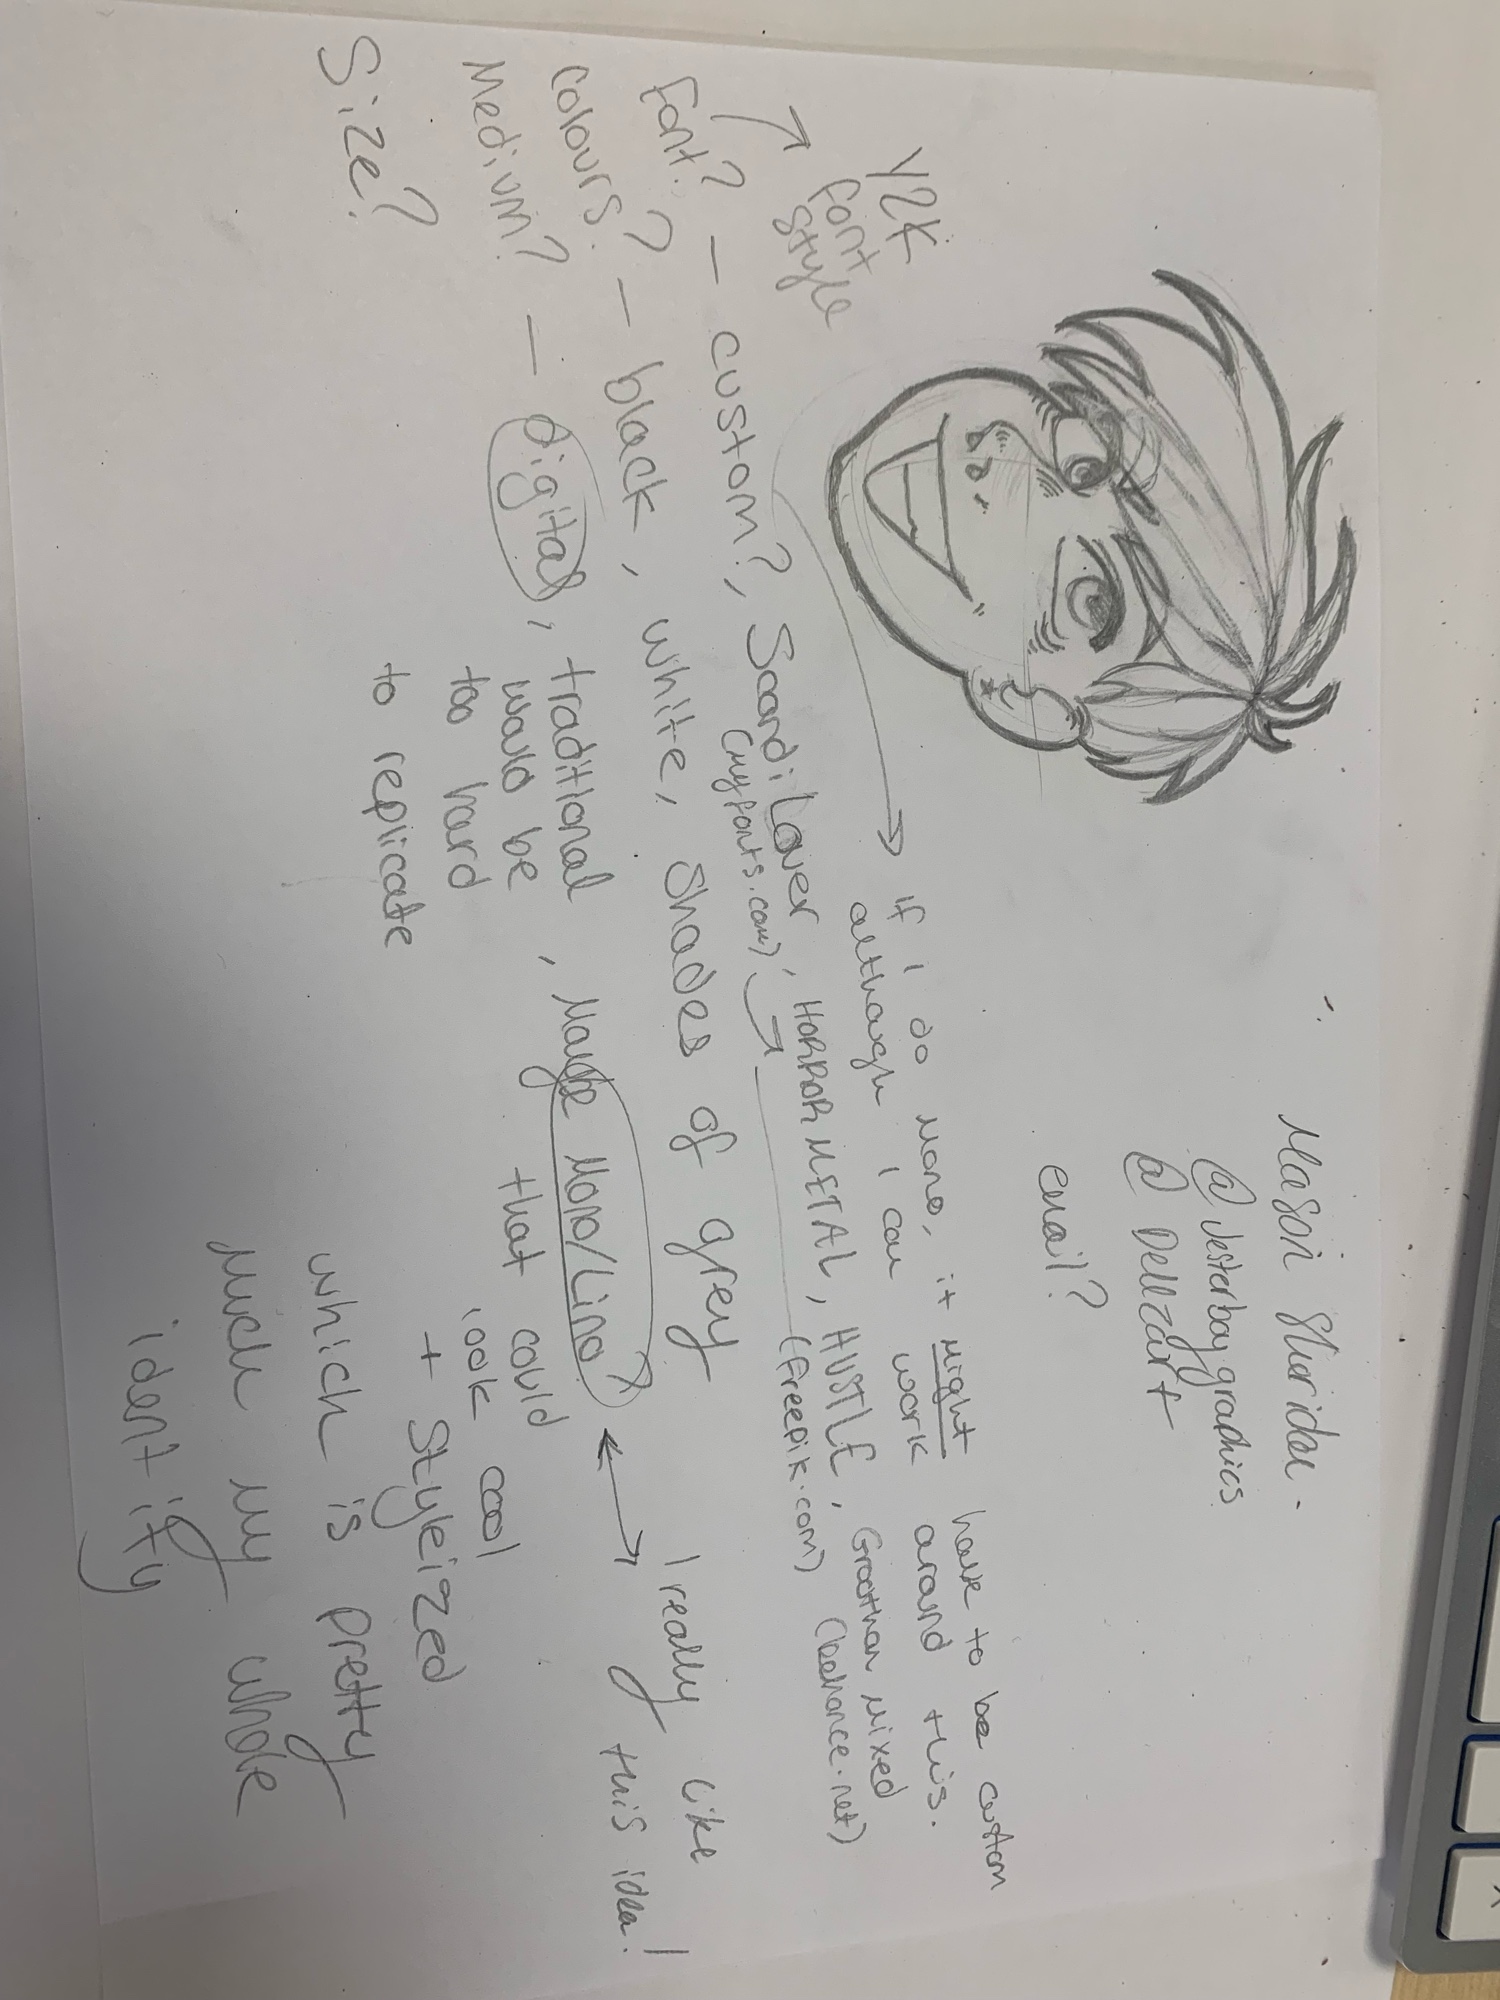 Mason Sheridan.
@ Jesterboygraphics
@ Dellzart
email?
Y2K
font
style
If i do mono, it might have to be custom
although i can work around this.
Font? — custom?, Scandi Lover, HORROR METAL, HUSTLE, Groothan mixed
(myfonts.com) (freepik.com) (behance.net)
colours? — black, white, shades of grey
Medium? — digital, traditional, Maybe Mono/Lino?
I really like
this idea!
would be
too hard
to replicate
that could
look cool
+ styleized
which is pretty
much my whole
identify
Size?